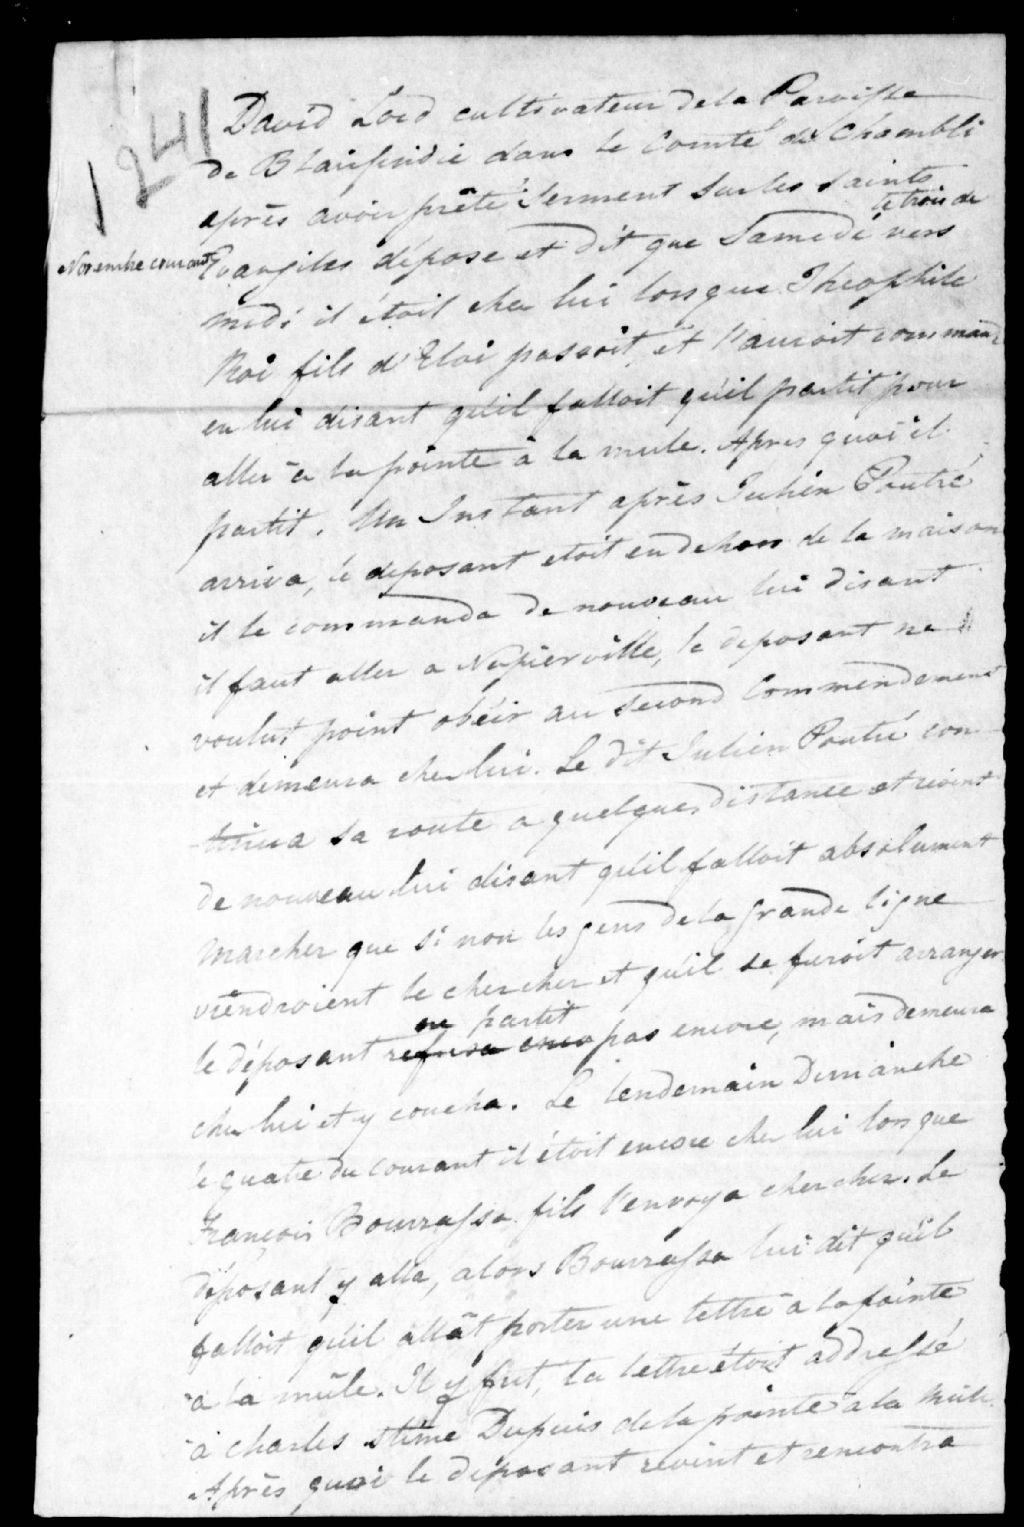 1241
David Lord cultivateur de la Paroisse
de Blairfindie dans le Comté de Chambli
après avoir prêté serment sur les saints
le trois de
Novembre courant
Evangiles dépose et dit que Samedi vers
midi il étoit chez lui lorsque Théophile
Roi fils d'Eloi passoit et l'auroit commandé
en lui disant qu'il falloit qu'il partit pour
aller à la pointe à la mule. Après quoi il
partit. Un Instant après Julien Poutré
arriva, le deposant etoit en dehors de la maison
il le commanda de nouveau lui disant
il faut aller a Napierville, le deposant ne
voulut point obéir au second Commendement
et demeura chez lui. Le dit Julien Poutré con
tinua sa route a quelques distance et revint
de nouveau lui disant qu'il falloit absolument
marcher que si non les gens de la grande ligne
viendroient le chercher et qu'il se feroit arranger
ne partit
le déposant refusa enco pas encore, mais demeura
chez lui et y coucha. Le lendemain Dimanche
le quatre du courant il étoit encore chez lui lorsque
François Bourrassa fils l'envoya chercher. Le
déposant y alla, alors Bourrassa lui dit qu'il
falloit qu'il allât porter une lettre à la pointe
à la mûle. Il y fut, la lettre étoit addressé
à Charles Dupuis de la pointe à la mule.
Après quoi le déposant revint et rencontra